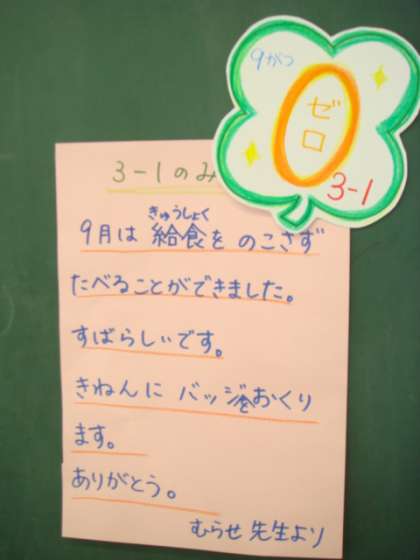 9がつ
ゼロ
3-1
3-1のみ
きゅうしょく
9月は 給食を のこさず
たべることができました。
すばらしいです。
きねんに バッジをおくり
ます。
ありがとう。
むらせ 先生より